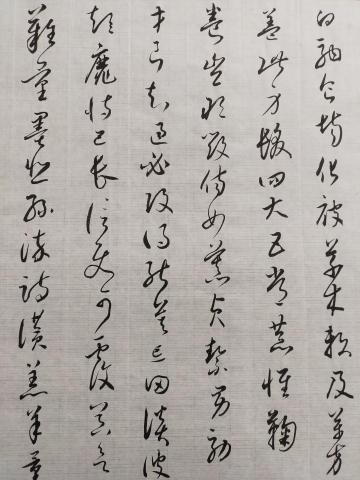 白駒食場化被草木賴及萬方
蓋此身髮四大五常恭惟鞠
養豈敢毀傷女慕貞絜男效
才良知過必改得能莫忘罔談彼
短靡恃己長信使可覆器欲
難量墨悲絲染詩讚羔羊景